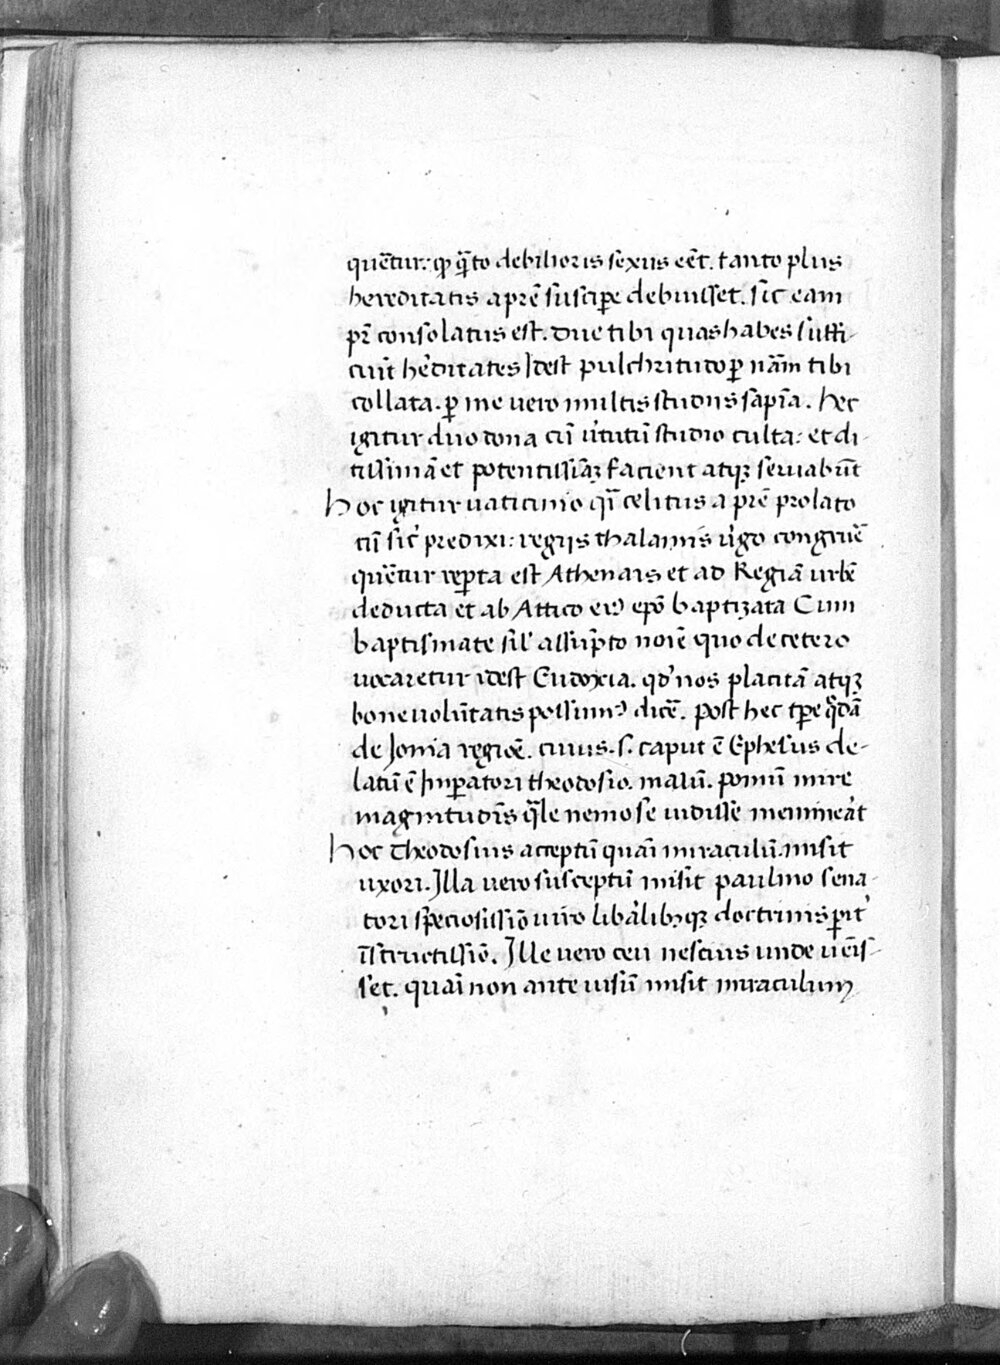 quẽtur: ꝙ q̃to debilioris sexus eẽt. tanto plus
hereditatis a prẽ suscipe debuisset. sic eam
pr̃ consolatus est. Due tibi quas habes suffi-
ciũt hẽditates Idest pulchritudo ꝑ nãm tibi
collata. ꝑ me vero multis studiis sapĩa. hec
igitur duo dona cũ ṽtutũ studio culta: et di-
tissimã et potentissiãꝫ facient atqꝫ seruabũt
hoc igitur vaticinio qĩ celitus a prẽ prolato
cũ sic̾ predixi: regijs thalamis ṽgo congruẽ
quẽtur reꝑta est Athenais et ad Regiã urbẽ
deducta et ab Attico eiꝰ epõ baptizata Cum
baptismate sil̾ assũpto noĩe quo de cetero
vocaretur idest Eudoxia. qđ nos placitã atqꝫ
bone volũtatis possumꝰ dicẽ. post hec tꝑe q̃dã
de Jonia regiõe. cuius .s. caput ẽ Ephesus de-
latũ ẽ Imꝑatori theodosio. malũ. pomũ mire
magnitudĩs q̃le nemo se vidisse meminẽat
hoc Theodosius acceptũ quasi miraculũ misit
uxori. Illa vero susceptũ misit paulino sena-
tori speciosissiõ viro libãlibꝫqꝫ doctrinis ꝑit̾
ĩstructissiõ. Ille vero ceu nescius unde veĩs-
set. quasi non ante visũ misit miraculum